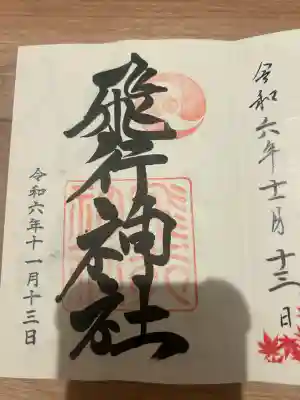 令和六年十二月十三日
飛行神社
令和六年十一月十三日